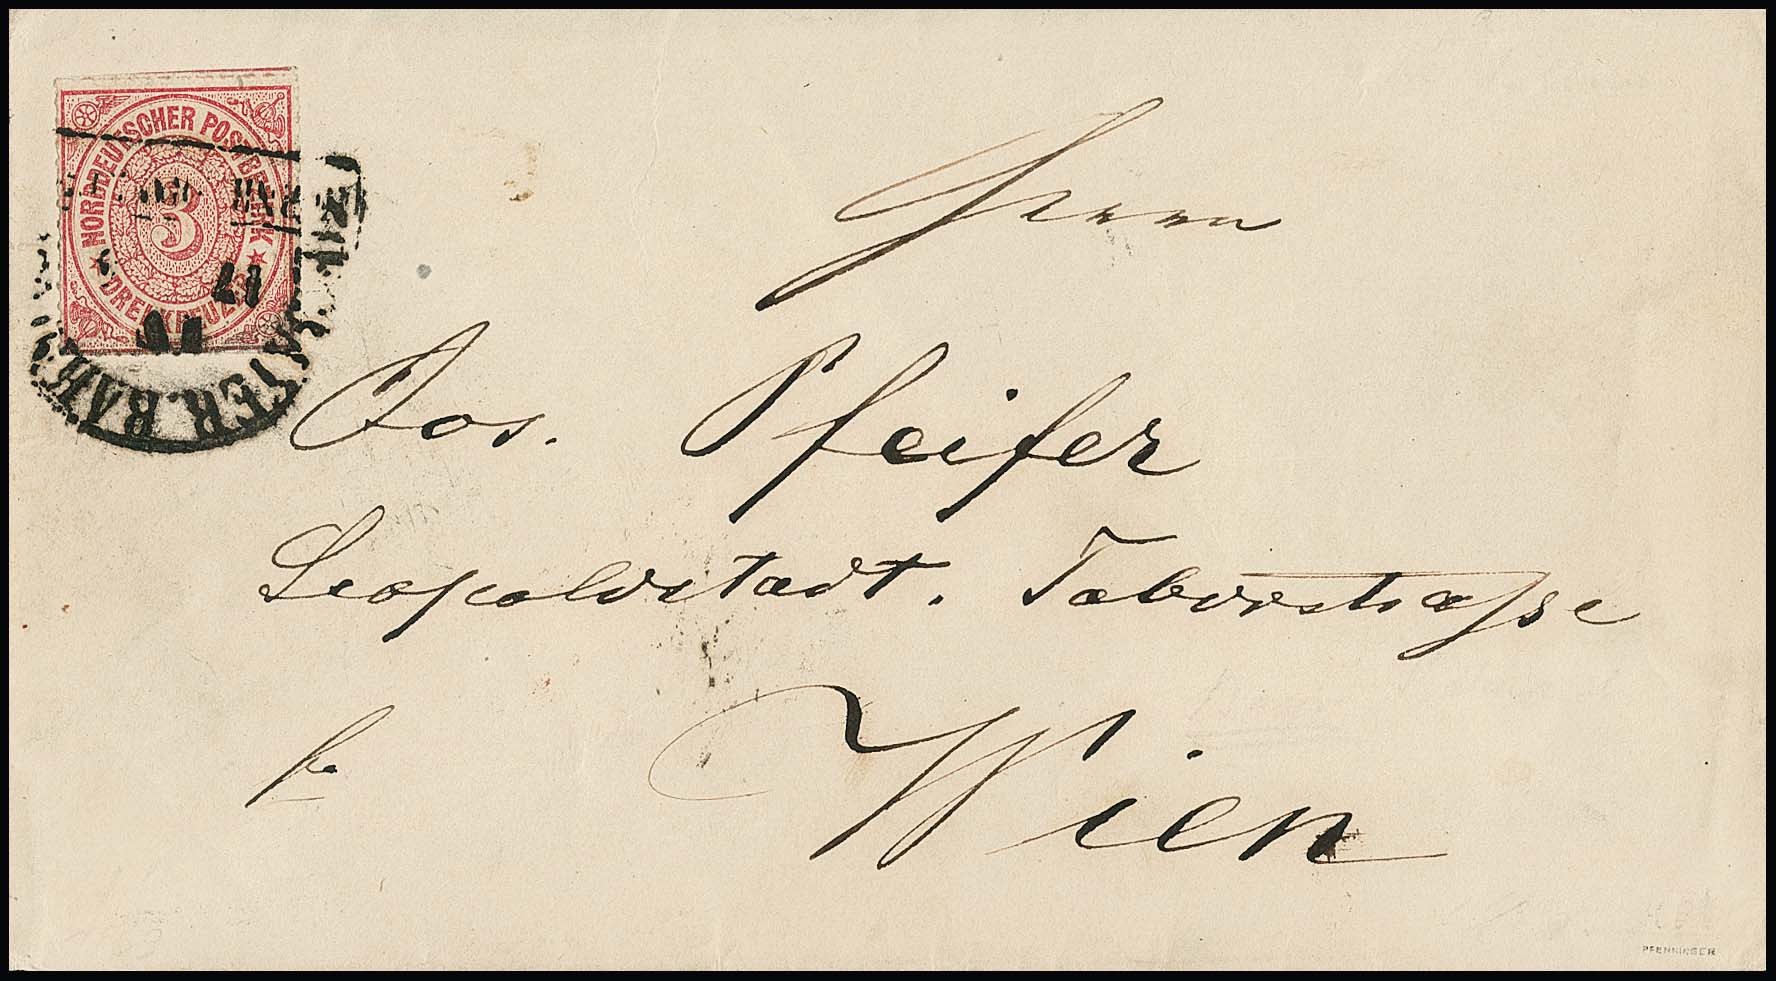 NORDDEUTSCHER POSTBEZIRK
3
DREI KREUZER
17
Herrn
Jos. Pfeifer
Leopoldstadt. Taborstrasse
fr
Wien
PFENNINGER